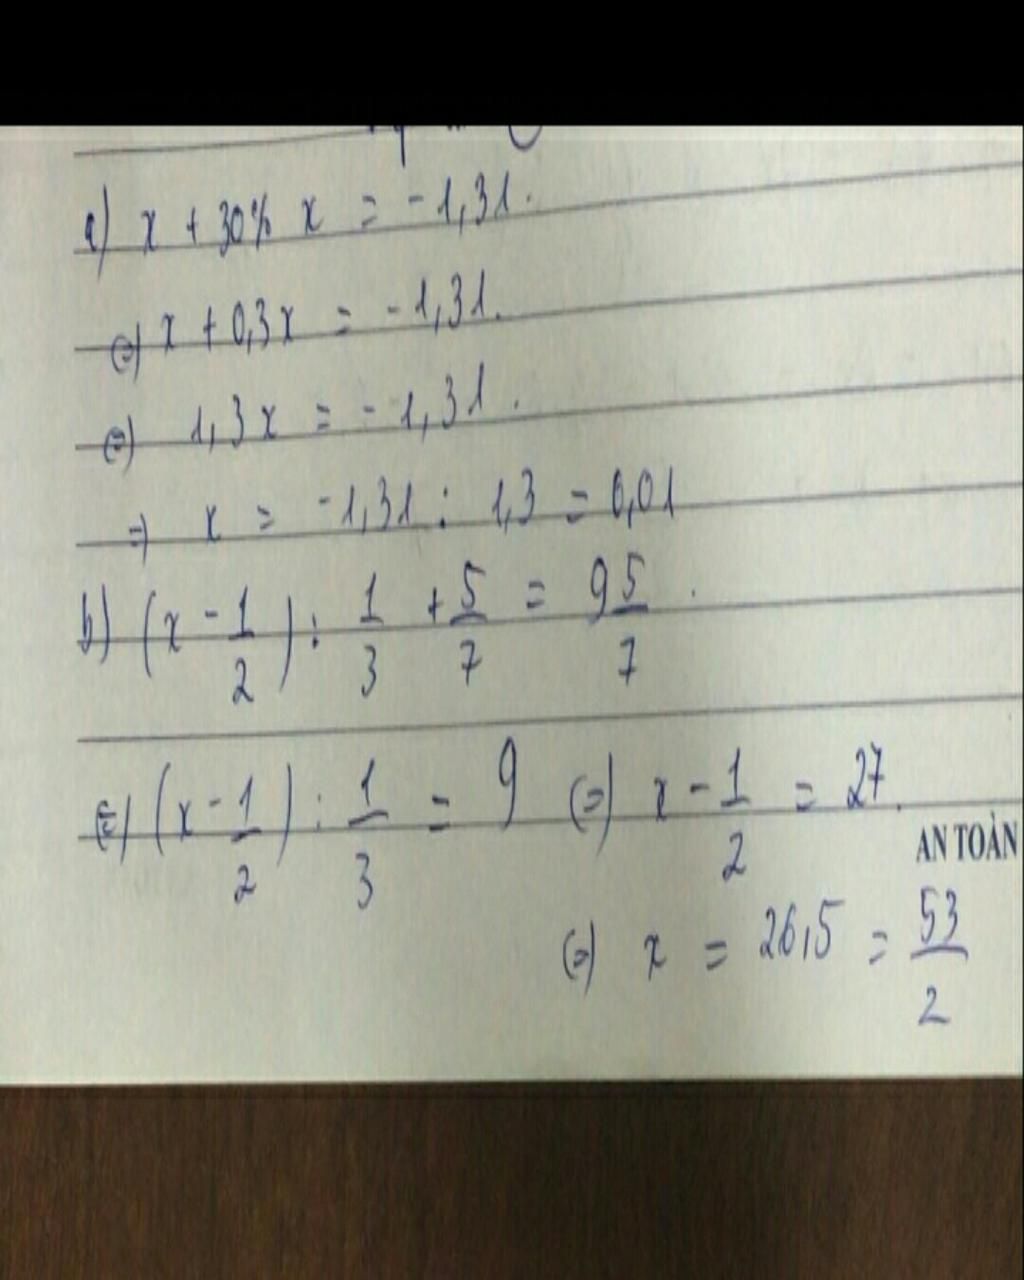 a) x + 30% x = -1,31.
(=) x + 0,3x = -1,31.
(=) 1,3x = -1,31.
=) x = -1,31 : 1,3 = 0,01
b) (x - 1/2) : 1/3 + 5/7 = 9 5/7.
(=) (x - 1/2) : 1/3 = 9 (=) x - 1/2 = 27.
AN TOÀN
(=) x = 26,5 = 53/2